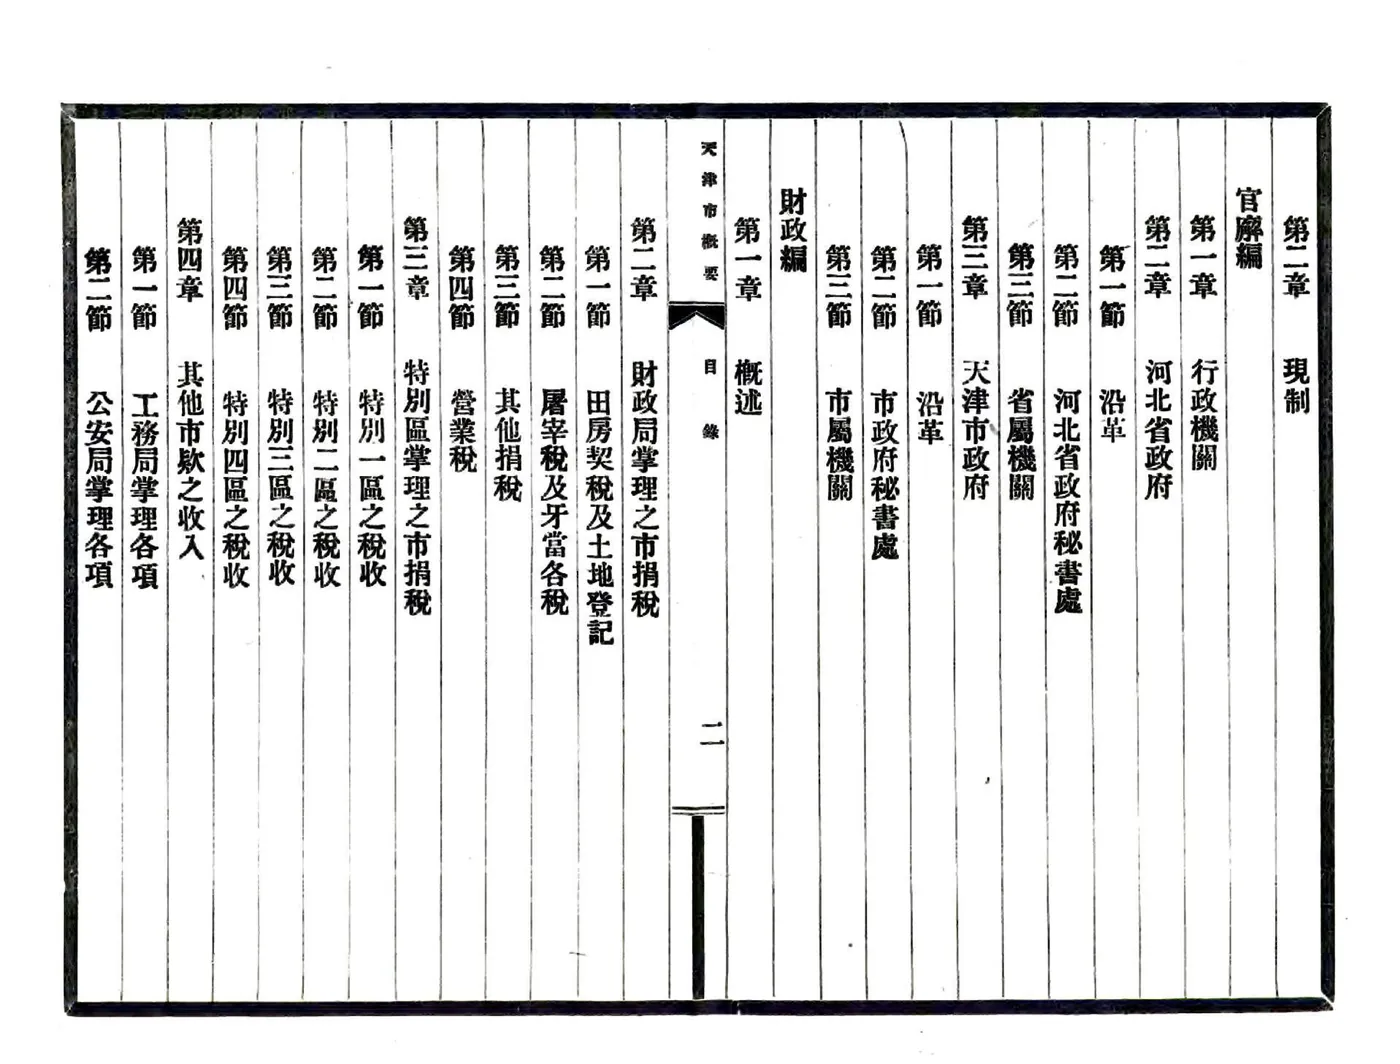 第二章　現制
官廨編
第一章　行政機關
第二章　河北省政府
第一節　沿革
第二節　河北省政府秘書處
第三節　省屬機關
第三章　天津市政府
第一節　沿革
第二節　市政府秘書處
第三節　市屬機關
財政編
第一章　概述
天津市概要
目錄
二
第二章　財政局掌理之市捐稅
第一節　田房契稅及土地登記
第二節　屠宰稅及牙當各稅
第三節　其他捐稅
第四節　營業稅
第三章　特別區掌理之市捐稅
第一節　特別一區之稅收
第二節　特別二區之稅收
第三節　特別三區之稅收
第四節　特別四區之稅收
第四章　其他市欵之收入
第一節　工務局掌理各項
第二節　公安局掌理各項